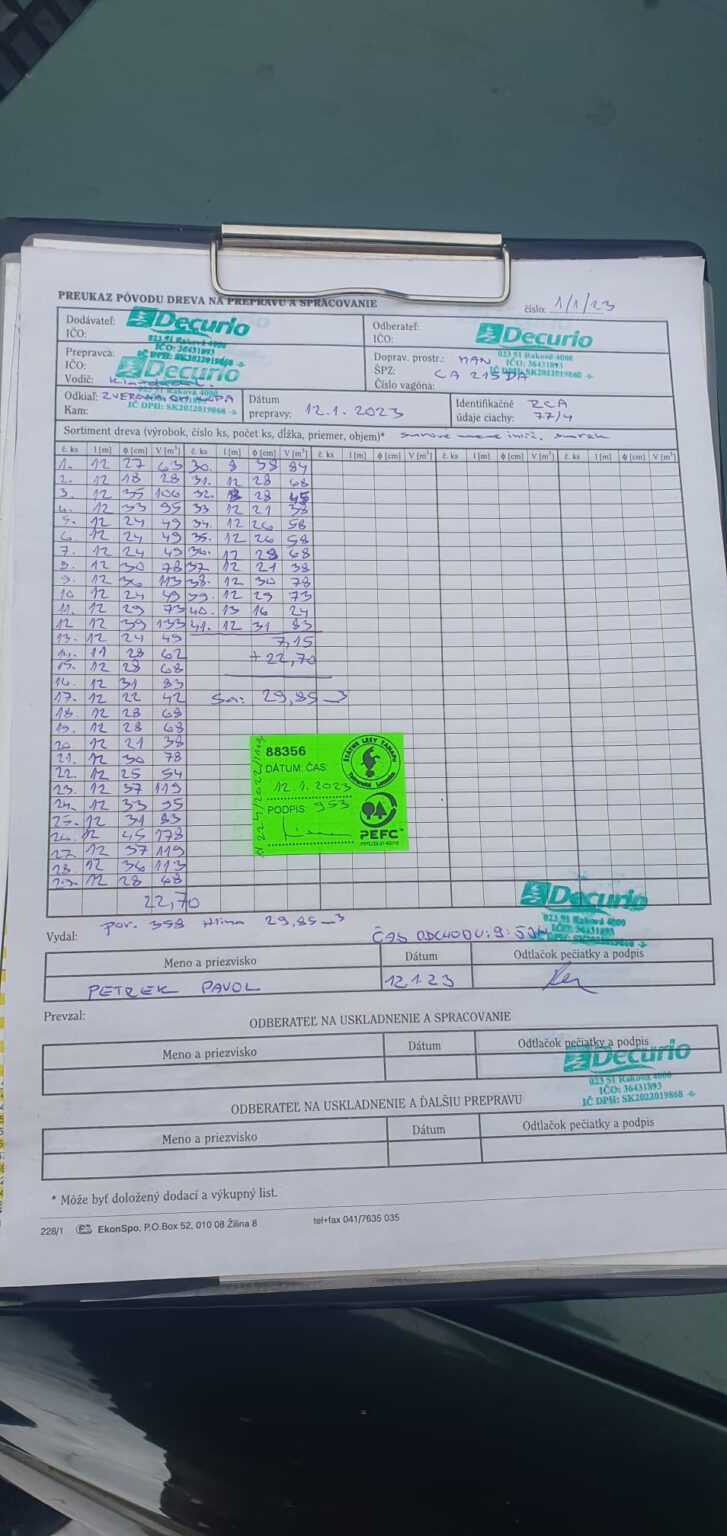 PREUKAZ PÔVODU DREVA NA PREPRAVU A SPRACOVANIE
číslo: 1/1/23
Dodávateľ: Decurio
IČO:
023 51 Raková 4000
IČO: 36431893
IČ DPH: SK2022019868
Odberateľ: Decurio
IČO:
023 51 Raková 4000
IČO: 36431893
IČ DPH: SK2022019868
Prepravca: Decurio
IČO:
Vodič:
IČ DPH: SK2022019868
Doprav. prostr.: MAN
ŠPZ: CA 215DA
Číslo vagóna:
Odkiaľ:
Kam:
Dátum prepravy: 12.1.2023
Identifikačné údaje ciachy: RCA 77/4
Sortiment dreva (výrobok, číslo ks, počet ks, dĺžka, priemer, objem)*
č. ks l [m] ϕ [cm] V [m³] č. ks l [m] ϕ [cm] V [m³] č. ks l [m] ϕ [cm] V [m³] č. ks l [m] ϕ [cm] V [m³] č. ks l [m] ϕ [cm] V [m³]
1. 12 27 63 30. 8 38 84
2. 12 18 28 31. 12 28 68
3. 12 35 106 32. 28 45
4. 12 33 95 33. 12 21 38
5. 12 24 49 34. 12 26 58
6. 12 24 49 35. 12 26 58
7. 12 24 49 36. 12 28 68
8. 12 30 78 37 12 21 38
9. 12 36 113 38. 12 30 78
10 12 24 49 39. 12 29 73
11. 12 29 73 40. 13 16 24
12 12 39 133 41. 12 31 83
13. 12 24 49 7,15
14. 11 28 62 + 22,70
15. 12 28 68
16. 12 31 83
17. 12 22 42 29,85 m3
18. 12 28 68
19. 12 28 68
20 12 21 38
21. 12 30 78
22. 12 25 54
23. 12 37 119
24. 12 33 95
25. 12 31 83
26. 12 45 178
27. 12 37 119
28. 12 36 113
29. 12 28 68
22,70
88356
DÁTUM: ČAS:
12.1.2023
PODPIS: 953
ŠTÁTNE LESY TANAPU
Tatranská Lomnica
PEFC
por. 358 29,85 m3
Decurio
023 51 Raková 4000
IČO: 36431893
Vydal:
ČAS ODCHODU: 9:53H
Meno a priezvisko Dátum Odtlačok pečiatky a podpis
PETREK PAVOL 12.1.23
Prevzal:
ODBERATEĽ NA USKLADNENIE A SPRACOVANIE
Meno a priezvisko Dátum Odtlačok pečiatky a podpis
Decurio
023 51 Raková 4000
IČO: 36431893
IČ DPH: SK2022019868
ODBERATEĽ NA USKLADNENIE A ĎALŠIU PREPRAVU
Meno a priezvisko Dátum Odtlačok pečiatky a podpis
* Môže byť doložený dodací a výkupný list.
228/1 EkonSpo, P.O.Box 52, 010 08 Žilina 8 tel+fax 041/7635 035